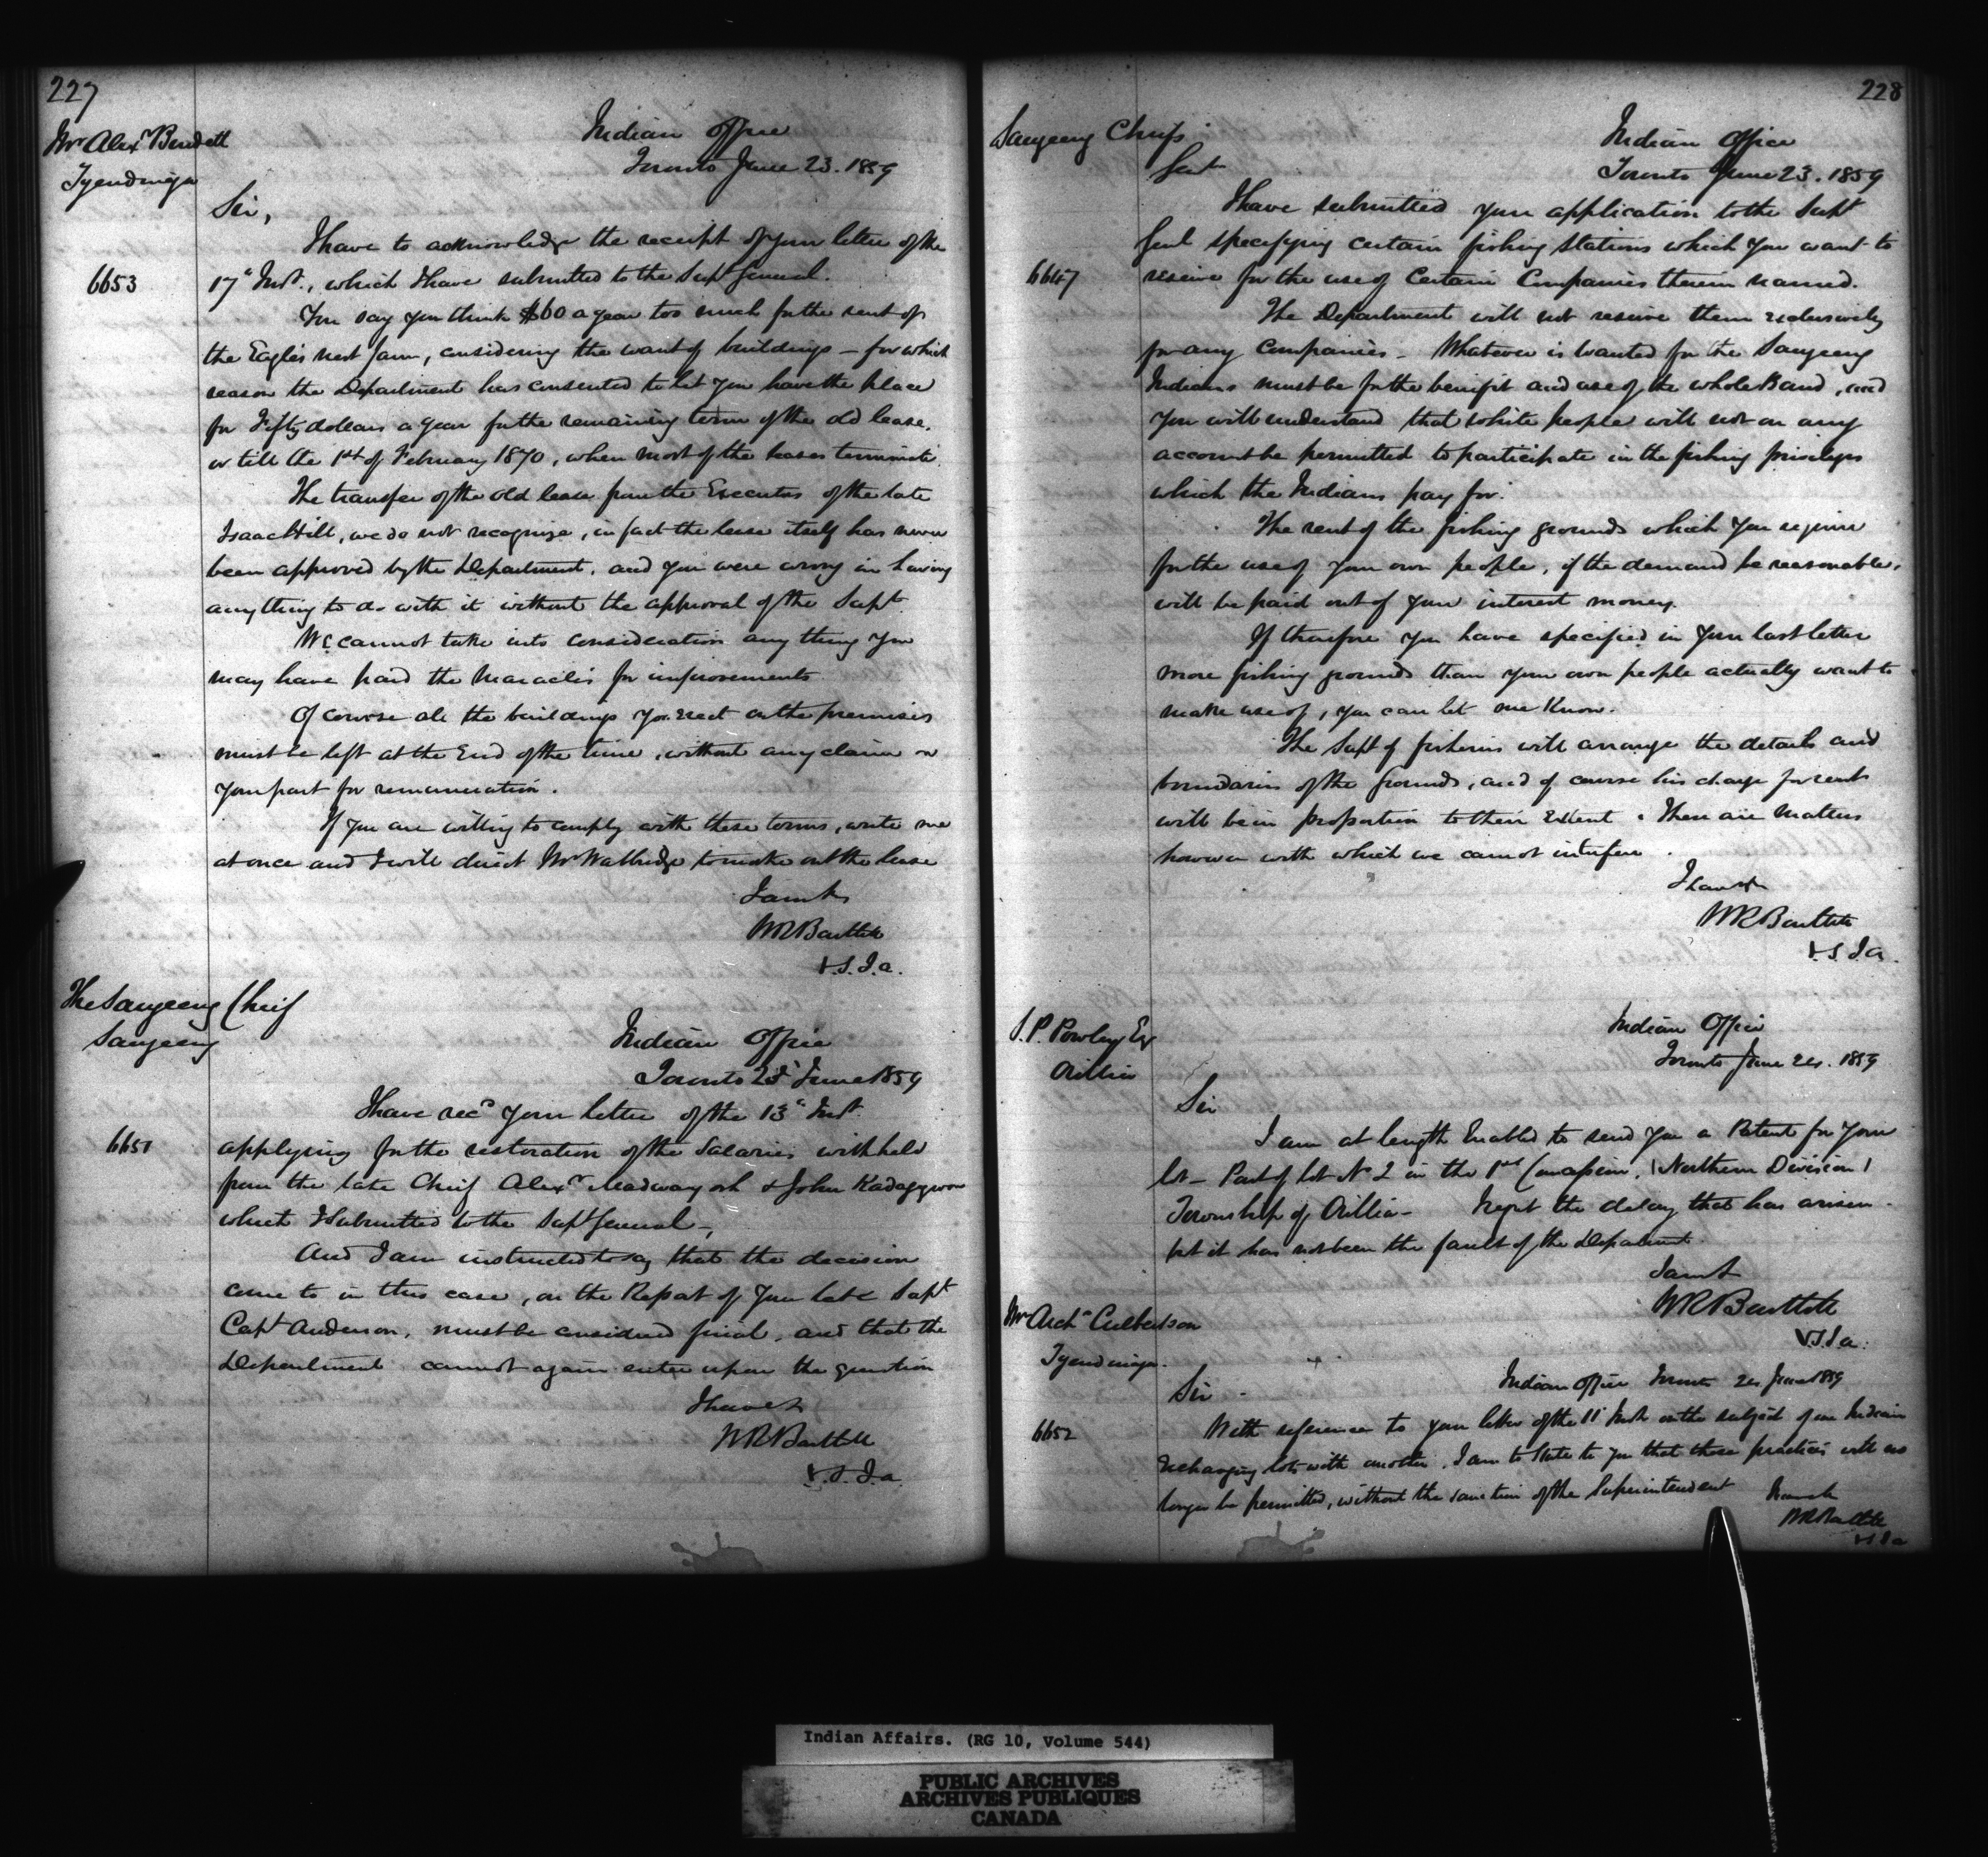 227
Mr Alexr Benedett
Tyendinaga
Indian Office
Toronto June 23. 1859
Sir,
I have to acknowledge the receipt of your letter of the
6653
17th Inst., which I have submitted to the Supt General.
You say you think $60 a year too much for the rent of
the Eagles nest farm, considering the want of buildings – for which
reason the Department has consented to let you have the place
for Fifty dollars a year for the remaining term of the old lease,
or till the 1st of February 1870, when most of the leases terminate.
The transfer of the old lease from the Executors of the late
Isaac Hill, we do not recognize, in fact the lease itself has never
been approved by the Department, and you were wrong in having
anything to do with it without the approval of the Supt.
We cannot take into consideration any thing you
may have paid the Maracles for improvements
Of course all the buildings you erect on the premises
must be left at the End of the time, without any claim on
your part for remuneration.
If you are willing to comply with these terms, write me
at once and I will direct Mr Wallbridge to make out the lease
I am &c
WRBartlett
V.S.I.a.
The Saugeeng Chief
Saugeeng
Indian Office
Toronto 23d June 1859
I have recd your letter of the 13th Inst.
6651
applying for the restoration of the Salaries withheld
from the late Chief Alexr Madwayosh & John Kadaggwon
which I submitted to the Supt General –
And I am instructed to say that the decision
come to in this case, on the Report of your late Supt
Capt Anderson, must be considered final, and that the
Department cannot again enter upon the question
I have &c
WRBartlett
V.S.I.a
228
Saugeeng Chiefs
Indian Office
Toronto June 23. 1859
Gent
I have submitted your application to the Supt
Genl specifying certain fishing stations which you want to
6647
reserve for the use of Certain Companies therein named.
The Department will not reserve them exclusively
for any Companies – Whatever is wanted for the Saugeeng
Indians must be for the benefit and use of the whole Band, and
you will understand that white people will not on any
account be permitted to participate in the fishing privileges
which the Indians pay for.
The rent of the fishing grounds which you require
for the use of your own people, if the demand be reasonable,
will be paid out of your interest money.
If therefore you have specified in your last letter
more fishing grounds than your own people actually want to
make use of, you can let me Know.
The Supt of fisheries will arrange the details and
boundaries of the Grounds, and of course his charge for rents
will be in proportion to their Extent. These are Matters
however with which we cannot interfere.
I have &c
WRBartlett
V.S.I.a.
S.P. Powley Esq
Orillia
Indian Office
Toronto June 24. 1859
Sir
I am at length Enabled to send you a Patent for your
lot – Part of lot No 2 in the 1st Concession, (Northern Division)
Township of Orillia – I regret the delay that has arisen –
but it has not been the fault of the Department.
I am &c
WRBartlett
V.S.I.a.
Mr Archd Culbertson
Tyendinaga.
Indian Office Toronto 24 June 1859
Sir –
6652
With reference to your letter of the 11th Inst on the subject of one Indian
exchanging lots with another, I am to State to you that these practices will no
longer be permitted, without the sanction of the Superintendent
I am &c
WRBartlett
V.S.I.a
Indian Affairs. (RG 10, Volume 544)
PUBLIC ARCHIVES
ARCHIVES PUBLIQUES
CANADA